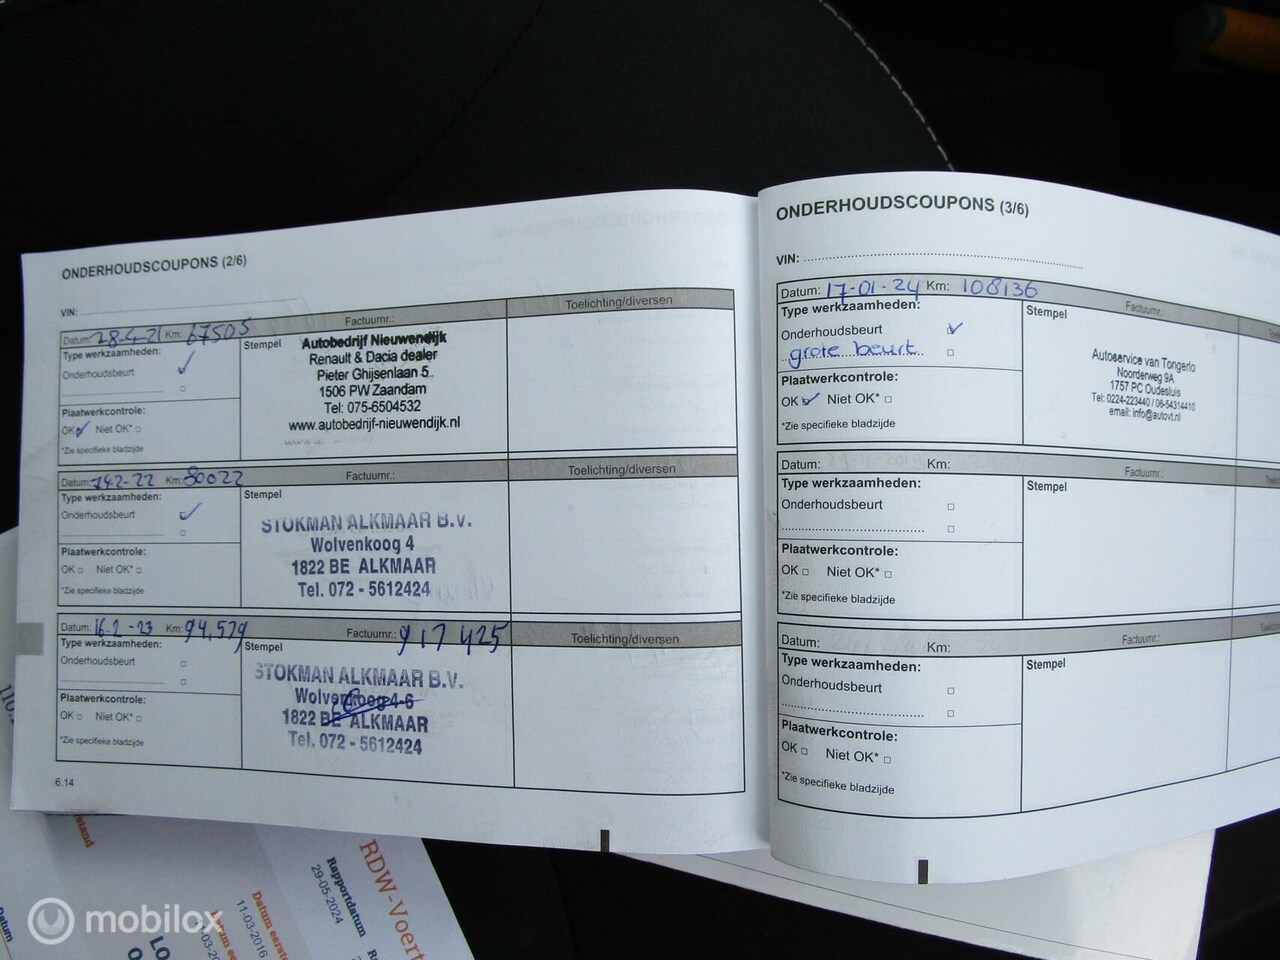 ONDERHOUDSCOUPONS (2/6)
VIN:
Datum: 28-4-21 Km: 67505 Factuurnr.: Toelichting/diversen
Type werkzaamheden:
Onderhoudsbeurt
Plaatwerkcontrole:
OK Niet OK*
*Zie specifieke bladzijde
Stempel
Autobedrijf Nieuwendijk
Renault & Dacia dealer
Pieter Ghijsenlaan 5
1506 PW Zaandam
Tel: 075-6504532
www.autobedrijf-nieuwendijk.nl
Datum: Km: 80022 Factuurnr.: Toelichting/diversen
Type werkzaamheden:
Onderhoudsbeurt
Plaatwerkcontrole:
OK Niet OK*
*Zie specifieke bladzijde
Stempel
STOKMAN ALKMAAR B.V.
Wolvenkoog 4
1822 BE ALKMAAR
Tel. 072 - 5612424
Datum: 16-2-23 Km: 94,579 Factuurnr.: 917425 Toelichting/diversen
Type werkzaamheden:
Onderhoudsbeurt
Plaatwerkcontrole:
OK Niet OK*
*Zie specifieke bladzijde
Stempel
STOKMAN ALKMAAR B.V.
Wolvenkoog 4-6
1822 BE ALKMAAR
Tel. 072 - 5612424
6.14
ONDERHOUDSCOUPONS (3/6)
VIN:
Datum: 17-01-24 Km: 108136 Factuurnr.:
Type werkzaamheden:
Onderhoudsbeurt
grote beurt
Plaatwerkcontrole:
OK Niet OK*
*Zie specifieke bladzijde
Stempel
Autoservice van Tongerlo
Noorderweg 9A
1757 PC Oudesluis
Tel: 0224-223440 / 06-54314410
email: info@autovt.nl
Datum: Km: Factuurnr.:
Type werkzaamheden:
Onderhoudsbeurt
Plaatwerkcontrole:
OK Niet OK*
*Zie specifieke bladzijde
Stempel
Datum: Km: Factuurnr.:
Type werkzaamheden:
Onderhoudsbeurt
Plaatwerkcontrole:
OK Niet OK*
*Zie specifieke bladzijde
Stempel
RDW-Voert
Rapportdatum
29-05-2024
Datum eerste
11-03-2016
Datum
mobilox